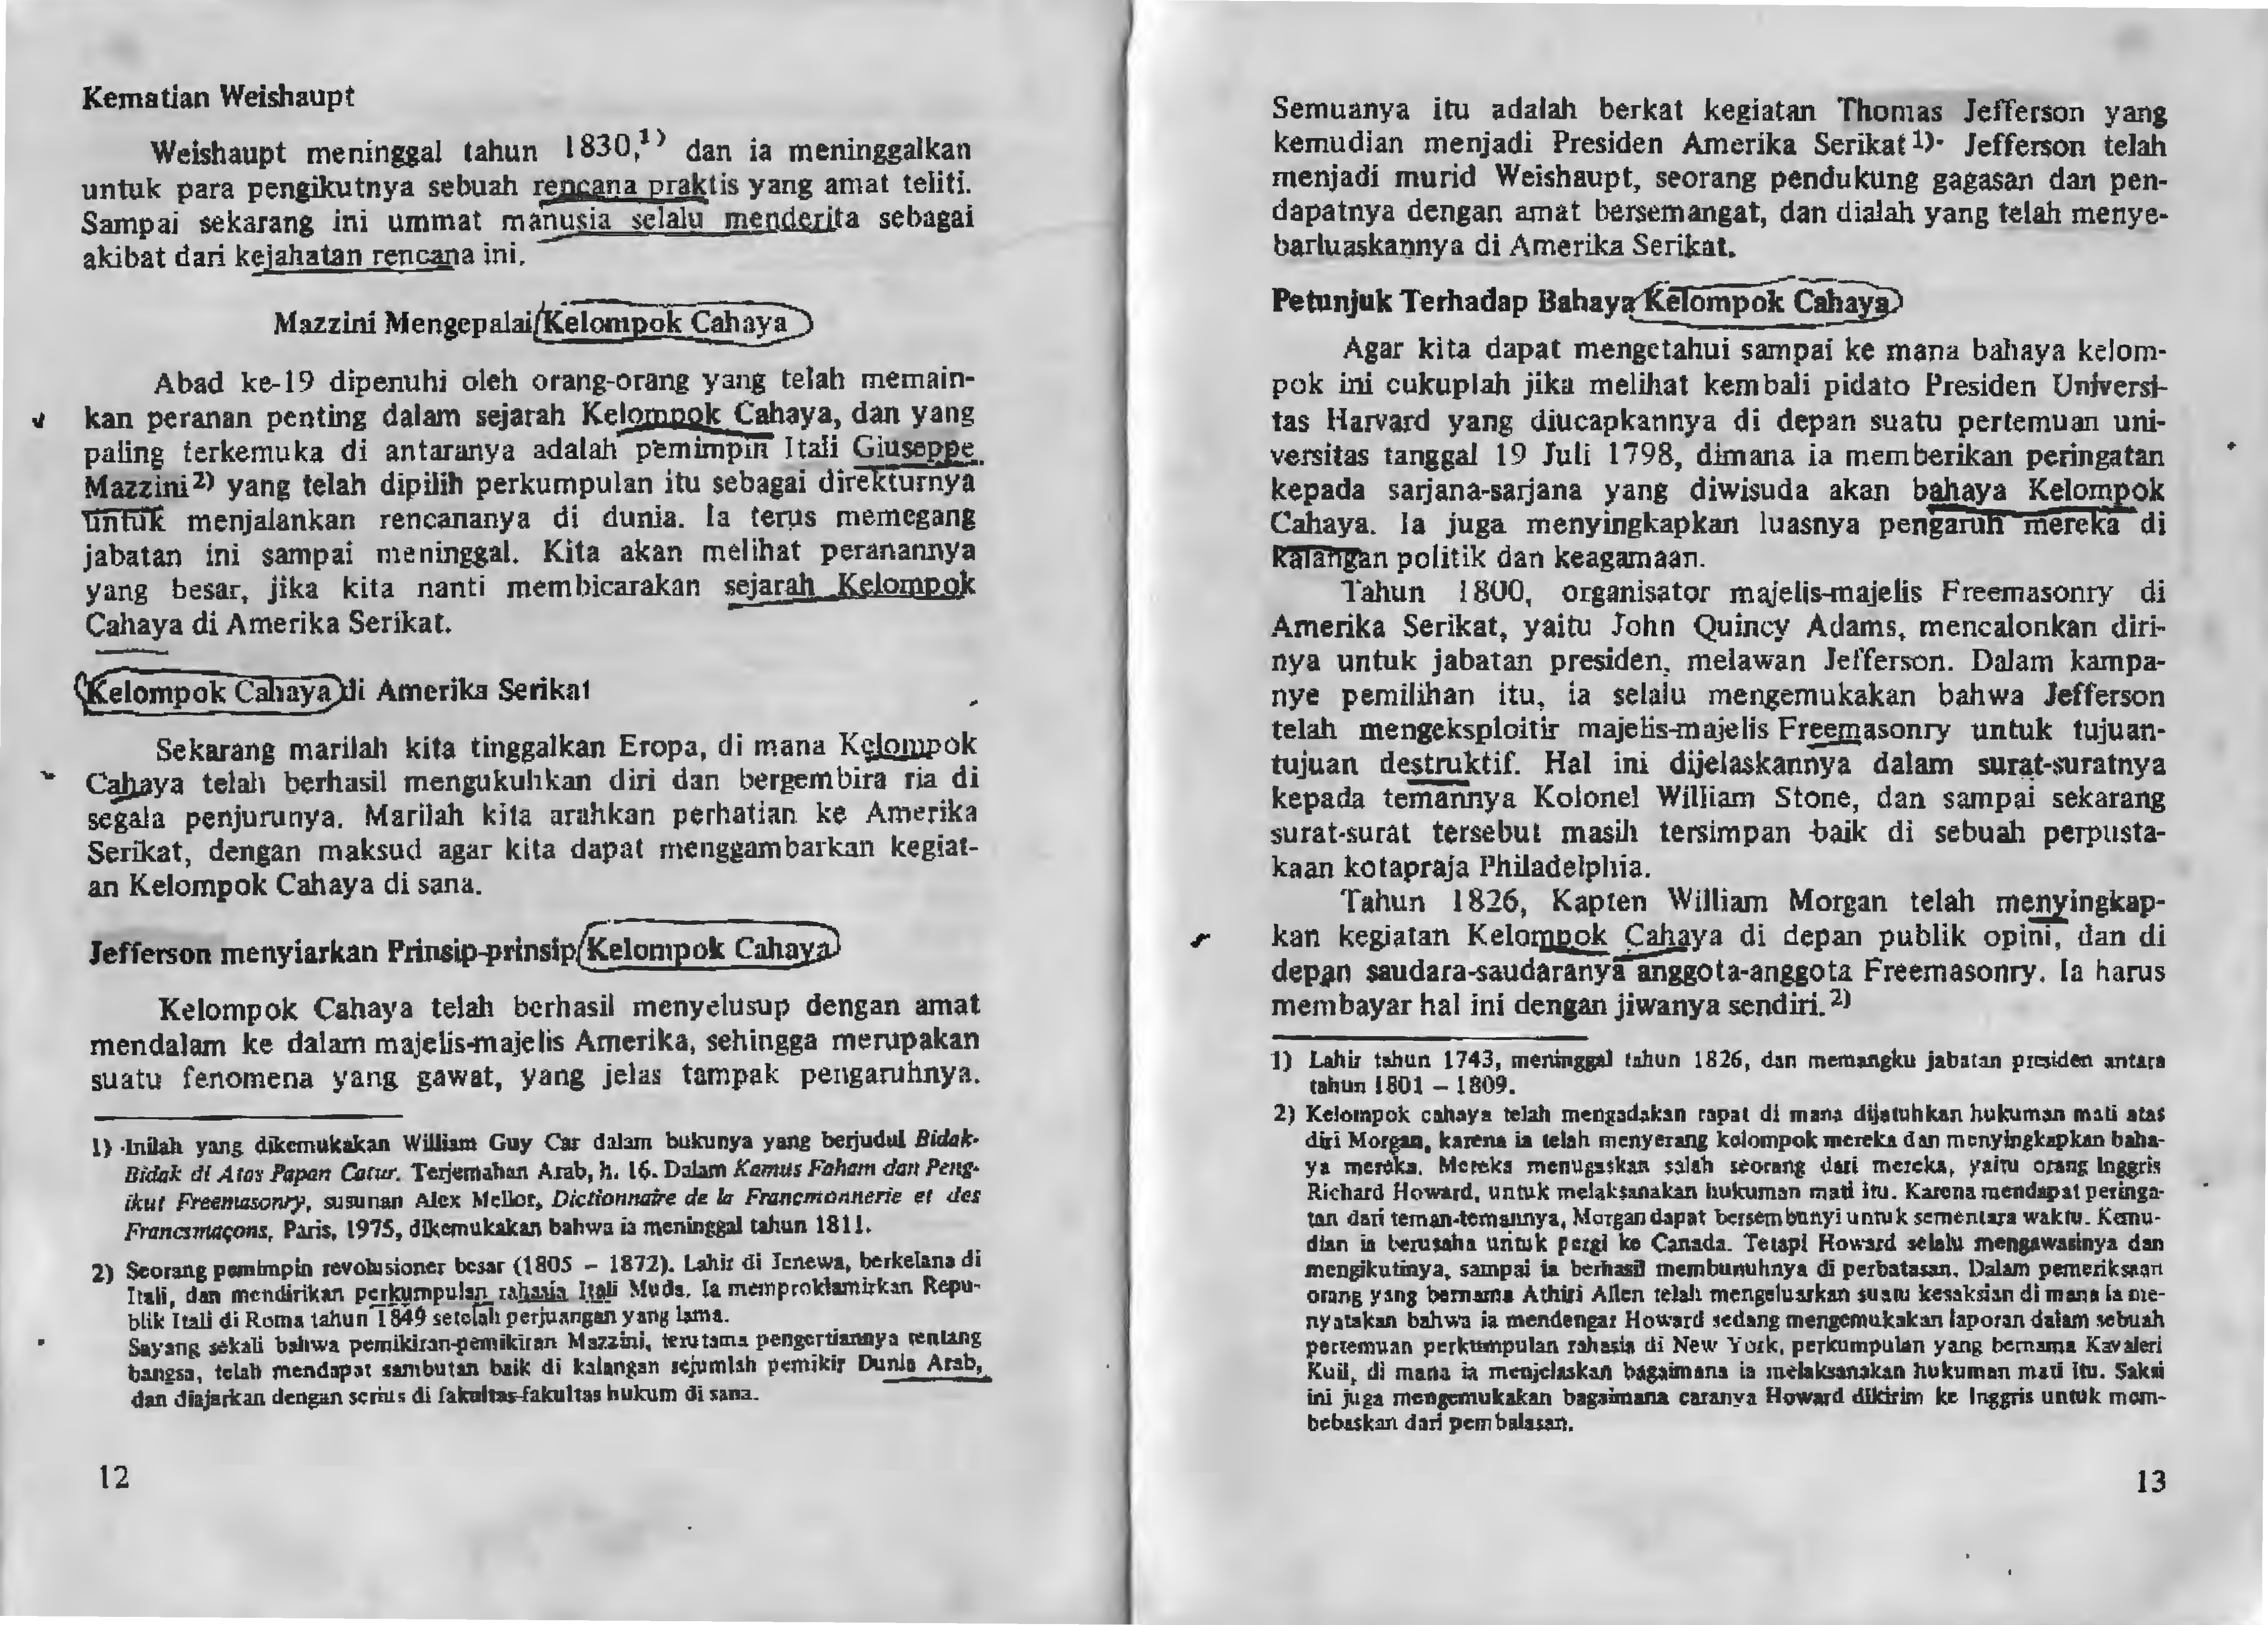 Kematian Weishaupt
Weishaupt meninggal tahun 1830,1) dan ia meninggalkan
untuk para pengikutnya sebuah rencana praktis yang amat teliti.
Sampai sekarang ini ummat manusia selalu menderita sebagai
akibat dari kejahatan rencana ini.
Mazzini Mengepalai Kelompok Cahaya
Abad ke-19 dipenuhi oleh orang-orang yang telah memain-
kan peranan penting dalam sejarah Kelompok Cahaya, dan yang
paling terkemuka di antaranya adalah pemimpin Itali Giuseppe
Mazzini2) yang telah dipilih perkumpulan itu sebagai direkturnya
untuk menjalankan rencananya di dunia. Ia terus memegang
jabatan ini sampai meninggal. Kita akan melihat peranannya
yang besar, jika kita nanti membicarakan sejarah Kelompok
Cahaya di Amerika Serikat.
Kelompok Cahaya di Amerika Serikat
Sekarang marilah kita tinggalkan Eropa, di mana Kelompok
Cahaya telah berhasil mengukuhkan diri dan bergembira ria di
segala penjurunya. Marilah kita arahkan perhatian ke Amerika
Serikat, dengan maksud agar kita dapat menggambarkan kegiat-
an Kelompok Cahaya di sana.
Jefferson menyiarkan Prinsip-prinsip Kelompok Cahaya
Kelompok Cahaya telah berhasil menyelusup dengan amat
mendalam ke dalam majelis-majelis Amerika, sehingga merupakan
suatu fenomena yang gawat, yang jelas tampak pengaruhnya.
1) Inilah yang dikemukakan William Guy Car dalam bukunya yang berjudul Bidak-
Bidak di Atas Papan Catur. Terjemahan Arab, h. 16. Dalam Kamus Faham dan Peng-
ikut Freemasonry, susunan Alex Mellor, Dictionnaire de la Francmonnerie et des
Francsmaçons, Paris, 1975, dikemukakan bahwa ia meninggal tahun 1811.
2) Seorang pemimpin revolusioner besar (1805 – 1872). Lahir di Jenewa, berkelana di
Itali, dan mendirikan perkumpulan rahasia Itali Muda. Ia memproklamirkan Repu-
blik Itali di Roma tahun 1849 setelah perjuangan yang lama.
Sayang sekali bahwa pemikiran-pemikiran Mazzini, terutama pengertiannya tentang
bangsa, telah mendapat sambutan baik di kalangan sejumlah pemikir Dunia Arab,
dan diajarkan dengan serius di fakultas-fakultas hukum di sana.
12
Semuanya itu adalah berkat kegiatan Thomas Jefferson yang
kemudian menjadi Presiden Amerika Serikat1). Jefferson telah
menjadi murid Weishaupt, seorang pendukung gagasan dan pen-
dapatnya dengan amat bersemangat, dan dialah yang telah menye-
barluaskannya di Amerika Serikat.
Petunjuk Terhadap Bahaya Kelompok Cahaya
Agar kita dapat mengetahui sampai ke mana bahaya kelom-
pok ini cukuplah jika melihat kembali pidato Presiden Universi-
tas Harvard yang diucapkannya di depan suatu pertemuan uni-
versitas tanggal 19 Juli 1798, dimana ia memberikan peringatan
kepada sarjana-sarjana yang diwisuda akan bahaya Kelompok
Cahaya. Ia juga menyingkapkan luasnya pengaruh mereka di
kalangan politik dan keagamaan.
Tahun 1800, organisator majelis-majelis Freemasonry di
Amerika Serikat, yaitu John Quincy Adams, mencalonkan diri-
nya untuk jabatan presiden, melawan Jefferson. Dalam kampa-
nye pemilihan itu, ia selalu mengemukakan bahwa Jefferson
telah mengeksploitir majelis-majelis Freemasonry untuk tujuan-
tujuan destruktif. Hal ini dijelaskannya dalam surat-suratnya
kepada temannya Kolonel William Stone, dan sampai sekarang
surat-surat tersebut masih tersimpan baik di sebuah perpusta-
kaan kotapraja Philadelphia.
Tahun 1826, Kapten William Morgan telah menyingkap-
kan kegiatan Kelompok Cahaya di depan publik opini, dan di
depan saudara-saudaranya anggota-anggota Freemasonry. Ia harus
membayar hal ini dengan jiwanya sendiri.2)
1) Lahir tahun 1743, meninggal tahun 1826, dan memangku jabatan presiden antara
tahun 1801 – 1809.
2) Kelompok cahaya telah mengadakan rapat di mana dijatuhkan hukuman mati atas
diri Morgan, karena ia telah menyerang kelompok mereka dan menyingkapkan baha-
ya mereka. Mereka menugaskan salah seorang dari mereka, yaitu orang Inggris
Richard Howard, untuk melaksanakan hukuman mati itu. Karena mendapat peringa-
tan dari teman-temannya, Morgan dapat bersembunyi untuk sementara waktu. Kemu-
dian ia berusaha untuk pergi ke Canada. Tetapi Howard selalu mengawasinya dan
mengikutinya, sampai ia berhasil membunuhnya di perbatasan. Dalam pemeriksaan
orang yang bernama Athiri Allen telah mengeluarkan suatu kesaksian di mana ia me-
nyatakan bahwa ia mendengar Howard sedang mengemukakan laporan dalam sebuah
pertemuan perkumpulan rahasia di New York, perkumpulan yang bernama Kavaleri
Kuil, di mana ia menjelaskan bagaimana ia melaksanakan hukuman mati itu. Saksi
ini juga mengemukakan bagaimana caranya Howard dikirim ke Inggris untuk mem-
bebaskan dari pembalasan.
13